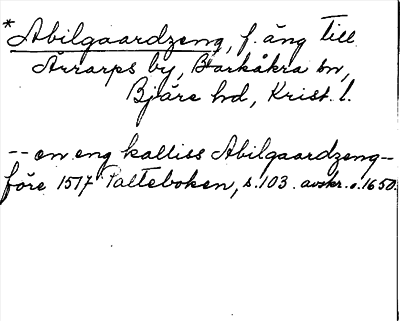 *Abilgaardzeng, f. äng till
Årrarps by, Barkåkra sn,
Bjäre hd, Krist. l.
-- en eng kalliss Abilgaardzeng --
före 1517 Palteboken, s. 103. avskr. o. 1650.